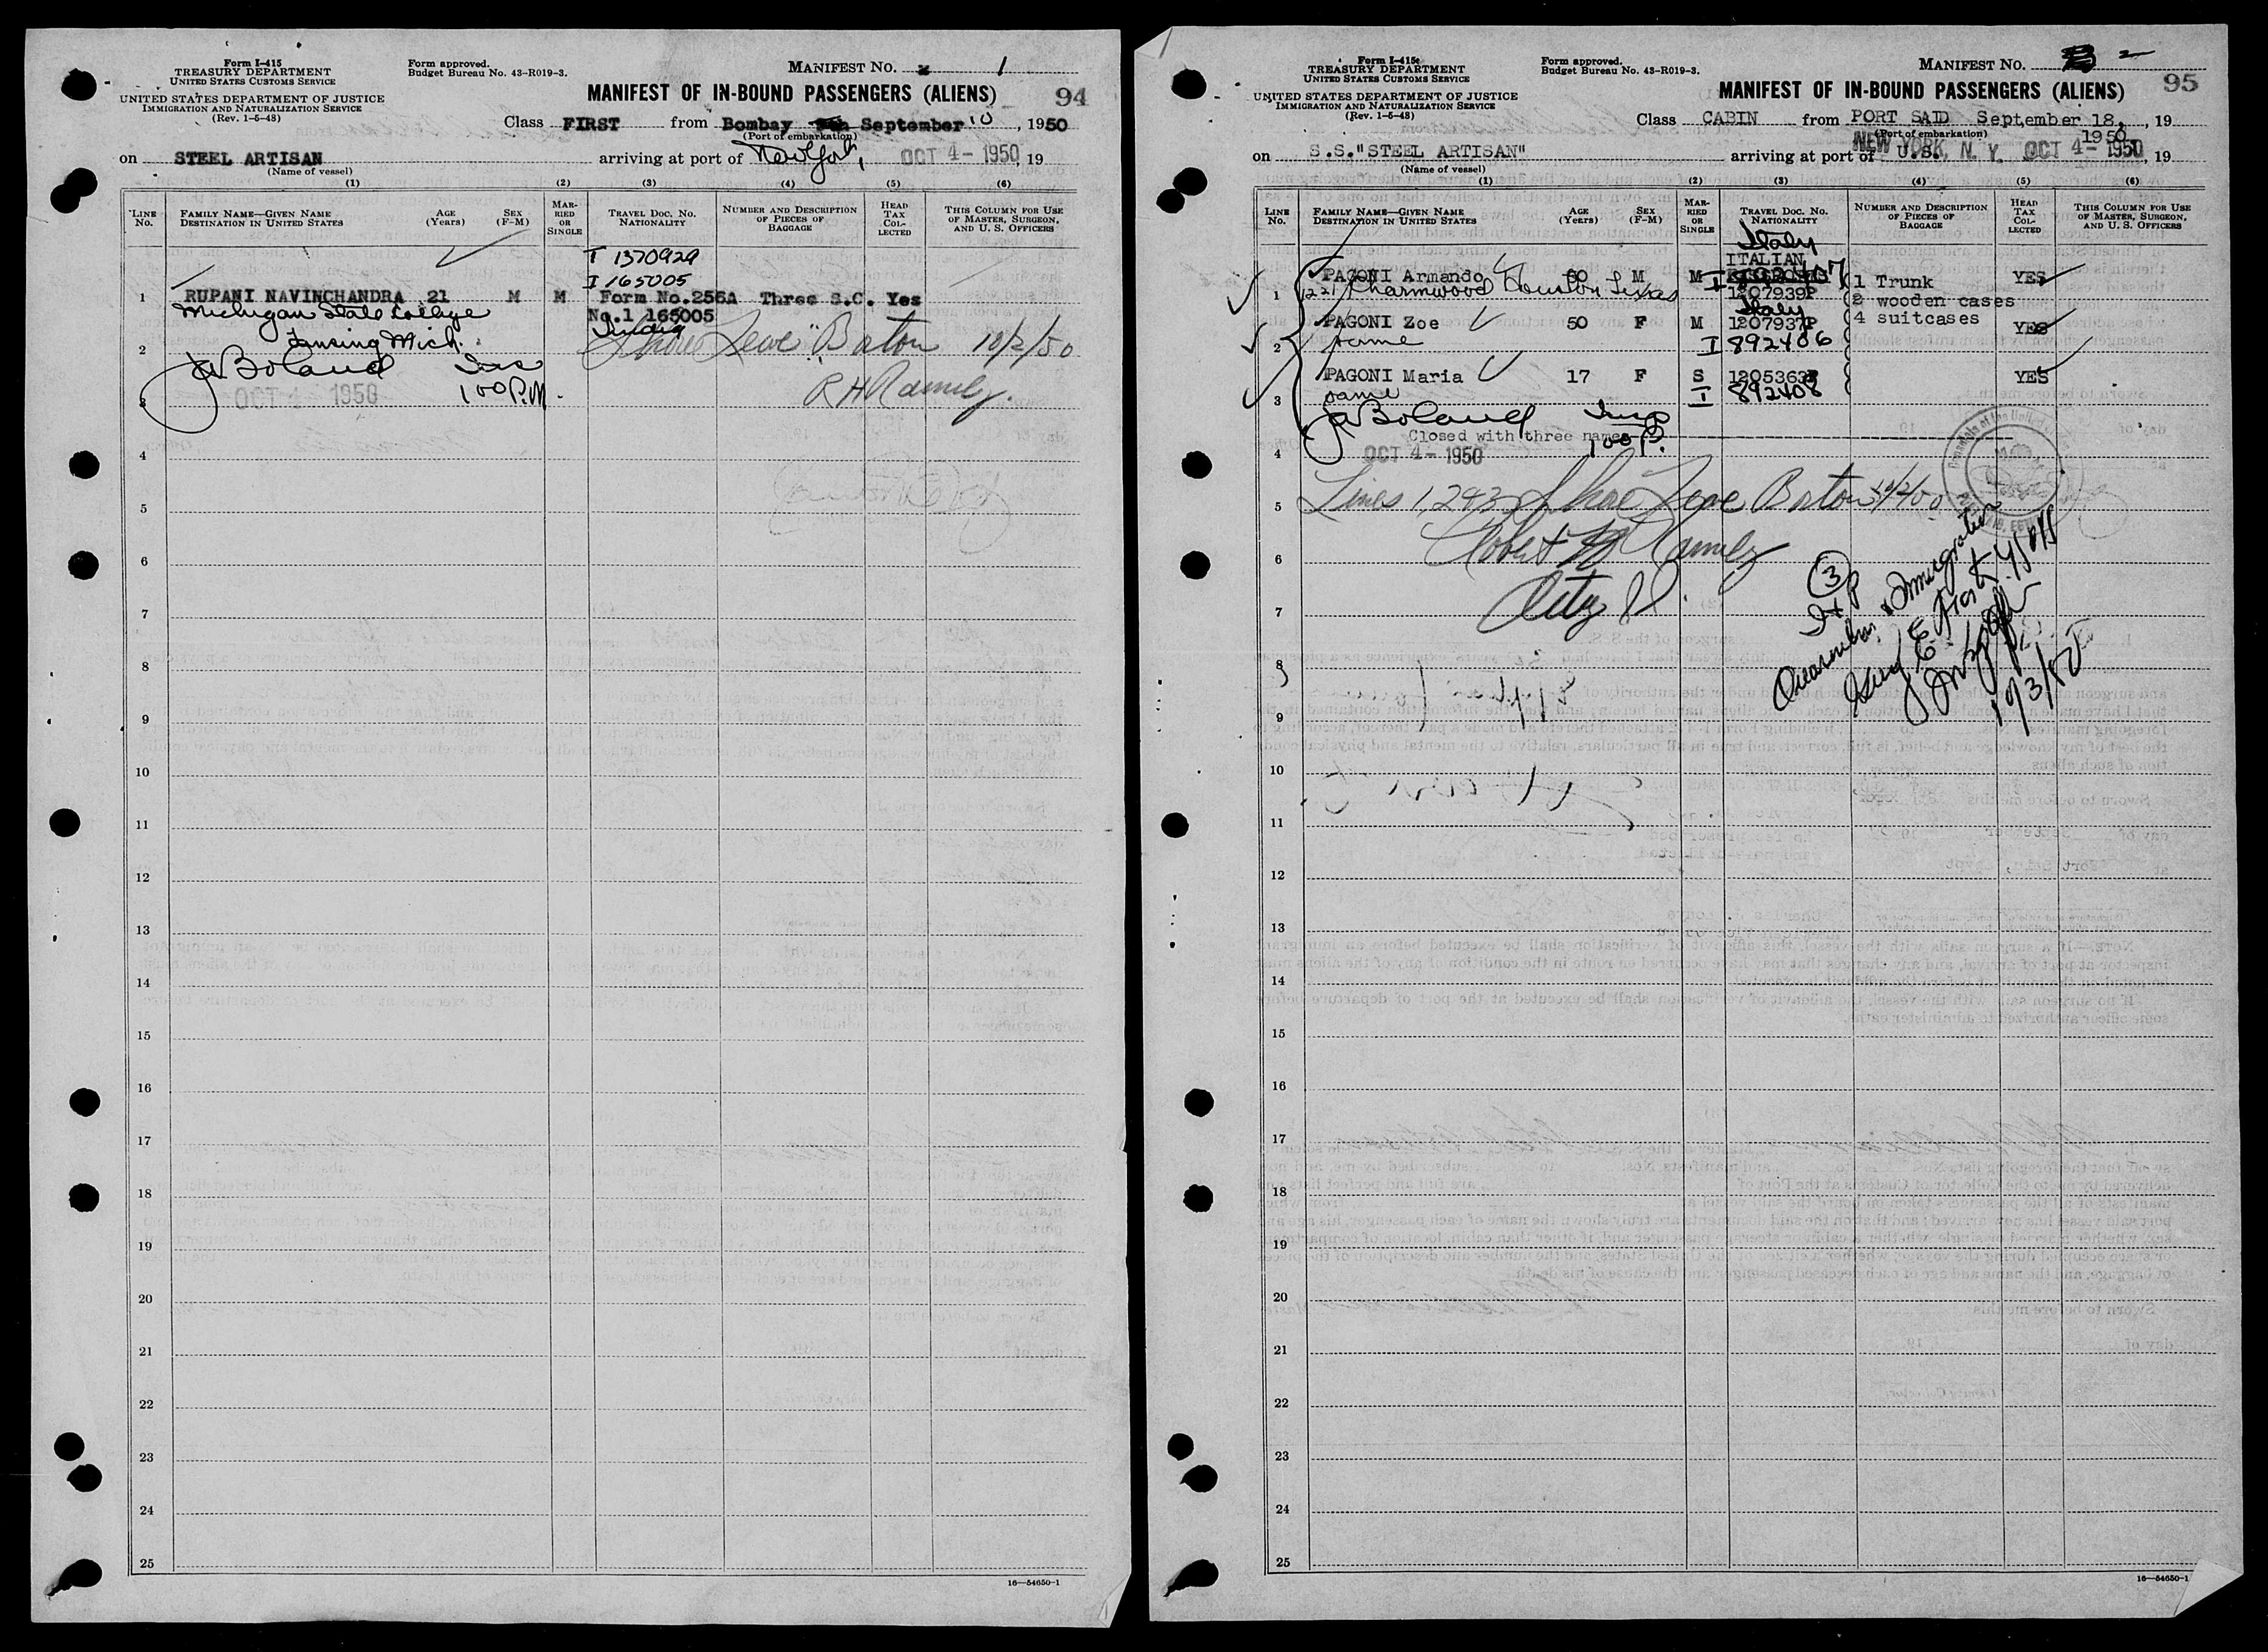 Form I-415
TREASURY DEPARTMENT
UNITED STATES CUSTOMS SERVICE
UNITED STATES DEPARTMENT OF JUSTICE
IMMIGRATION AND NATURALIZATION SERVICE
(Rev. 1-5-48)
Form approved.
Budget Bureau No. 43-R019-3.
MANIFEST NO. 1
MANIFEST OF IN-BOUND PASSENGERS (ALIENS)
94
Class FIRST from Bombay September 10, 1950
(Port of embarkation)
on STEEL ARTISAN arriving at port of New York, OCT 4 - 1950, 19
(Name of vessel)
(1) (2) (3) (4) (5) (6)
LINE NO.
FAMILY NAME—GIVEN NAME
DESTINATION IN UNITED STATES
AGE (Years)
SEX (F-M)
MARRIED OR SINGLE
TRAVEL DOC. NO.
NATIONALITY
NUMBER AND DESCRIPTION OF PIECES OF BAGGAGE
HEAD TAX COLLECTED
THIS COLUMN FOR USE OF MASTER, SURGEON, AND U. S. OFFICERS
T 1370929
I 165005
1 RUPANI NAVINCHANDRA 21 M M Form No.256A Three S.C. Yes
Michigan State College No.1 165005
India
2 Lansing Mich. Shore Leave Boston 10/2/50
J Boland Ins
R H Ramily.
100 P.M.
3 OCT 4 1950
4
5
6
7
8
9
10
11
12
13
14
15
16
17
18
19
20
21
22
23
24
25
16—54650-1
Form I-415
TREASURY DEPARTMENT
UNITED STATES CUSTOMS SERVICE
UNITED STATES DEPARTMENT OF JUSTICE
IMMIGRATION AND NATURALIZATION SERVICE
(Rev. 1-5-48)
Form approved.
Budget Bureau No. 43-R019-3.
MANIFEST NO. 2
MANIFEST OF IN-BOUND PASSENGERS (ALIENS)
95
Class CABIN from PORT SAID September 18, , 19
(Port of embarkation) 1950
on S.S."STEEL ARTISAN" arriving at port of NEW YORK, N. Y. U.S. OCT 4 - 1950, 19
(Name of vessel)
(1) (2) (3) (4) (5) (6)
LINE NO.
FAMILY NAME—GIVEN NAME
DESTINATION IN UNITED STATES
AGE (Years)
SEX (F-M)
MARRIED OR SINGLE
TRAVEL DOC. NO.
NATIONALITY
NUMBER AND DESCRIPTION OF PIECES OF BAGGAGE
HEAD TAX COLLECTED
THIS COLUMN FOR USE OF MASTER, SURGEON, AND U. S. OFFICERS
Italy
ITALIAN
1 PAGONI Armando 60 M M I 892407 1 Trunk YES
1221 Charmwood Houston Texas 1207939P 2 wooden cases
Italy 4 suitcases
PAGONI Zoe 50 F M 1207937P YES
2 same I 892406
PAGONI Maria 17 F S 1205363P YES
3 same I 892408
J Boland Insp
Closed with three names
100 P.
4 OCT 4 - 1950
5 Lines 1, 2 & 3 Shore Leave Boston 10/2/50
6 Robert H Ramily
7
3
Quarantine & Immigration
10/3/50
8
9
10
11
12
13
14
15
16
17
18
19
20
21
22
23
24
25
16—54650-1